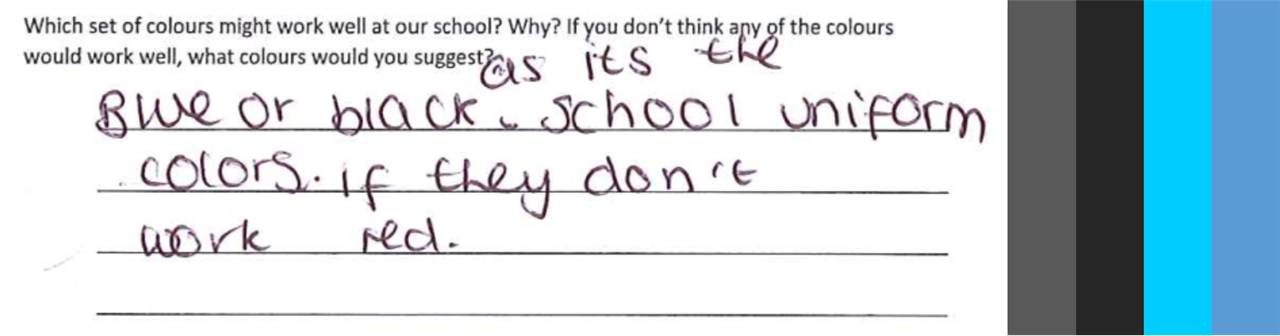 Which set of colours might work well at our school? Why? If you don't think any of the colours
would work well, what colours would you suggest?
as its the
Blue or black. school uniform
colors. if they don't
work red.